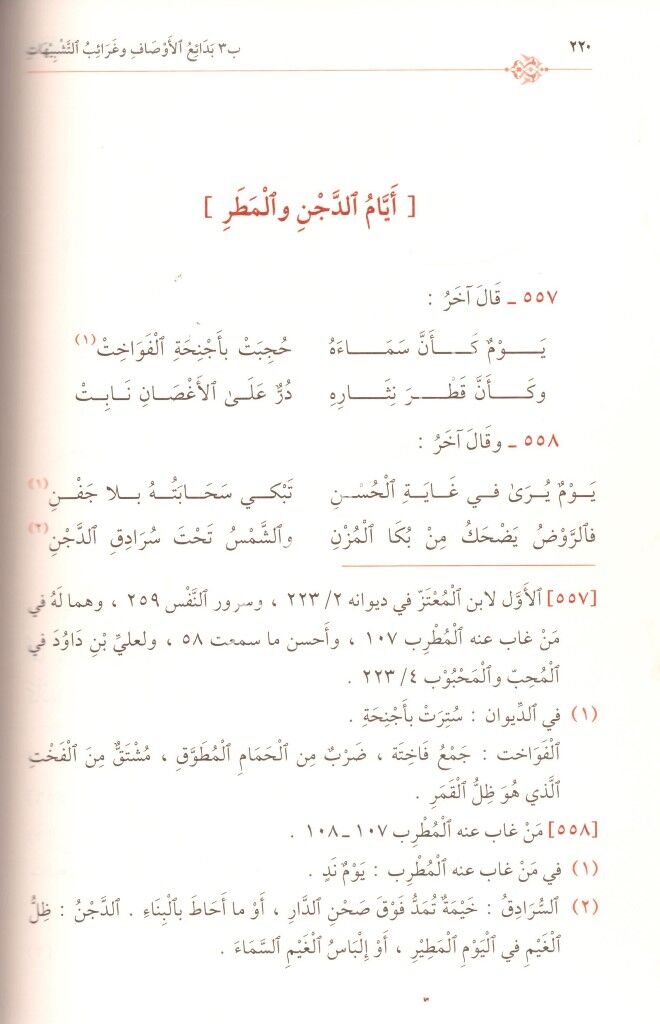 ٢٢٠ ب٣ بَدَائِعُ ٱلأَوْصَافِ وغَرَائِبُ ٱلتَّشْبِيهَاتِ
[ أَيَّامُ ٱلدَّجْنِ وٱلْمَطَرِ ]
٥٥٧ ـ قَالَ آخَرُ :
يَــوْمٌ كَــأَنَّ سَمَــاءَهُ حُجِبَتْ بأَجْنِحَةِ ٱلْفَوَاخِتْ(١)
وكَــأَنَّ قَطْـرَ نِثَــارِهِ دُرٌّ عَلَىٰ ٱلأَغْصَـانِ نَـابِتْ
٥٥٨ ـ وقَالَ آخَرُ :
يَـوْمٌ يُرَىٰ في غَـايَةِ ٱلْحُسْـنِ تَبْكـي سَحَـابَتُـهُ بـلا جَفْـنِ(١)
فٱلرَّوْضُ يَضْحَكُ مِنْ بُكَا ٱلْمُزْنِ وٱلشَّمْسُ تَحْتَ سُرَادِقِ ٱلدَّجْنِ(٢)
[٥٥٧] ٱلأَوَّل لابن ٱلْمُعْتَزّ في ديوانه ٢/ ٢٢٣ ، وسرور ٱلنَّفْس ٢٥٩ ، وهما لَهُ في
مَنْ غاب عنه ٱلْمُطْرِب ١٠٧ ، وأَحسن ما سمعت ٥٨ ، ولعليِّ بْنِ دَاوُدَ في
ٱلْمُحِبّ وٱلْمَحْبُوْب ٤/ ٢٢٣ .
(١) في ٱلدِّيوان : سُتِرَتْ بأَجْنِحَةِ .
ٱلْفَوَاخت : جَمْعُ فَاخِتَة ، ضَرْبٌ مِن ٱلْحَمَامِ ٱلْمُطَوَّقِ ، مُشْتَقٌّ مِنَ ٱلْفَخْتِ
ٱلَّذي هُوَ ظِلُّ ٱلْقَمَرِ .
[٥٥٨] مَنْ غاب عنه ٱلْمُطْرِب ١٠٧ ـ ١٠٨ .
(١) في مَنْ غاب عنه ٱلْمُطْرِب : يَوْمٌ نَدٍ .
(٢) ٱلسُّرَادِقُ : خَيْمَةٌ تُمَدُّ فَوْقَ صَحْنِ ٱلدَّارِ ، أَوْ ما أَحَاطَ بٱلْبِنَاءِ . ٱلدَّجْنُ : ظِلُّ
ٱلْغَيْمِ في ٱلْيَوْمِ ٱلْمَطِيْرِ ، أَوْ إِلْبَاسُ ٱلْغَيْمِ ٱلسَّمَاءَ .